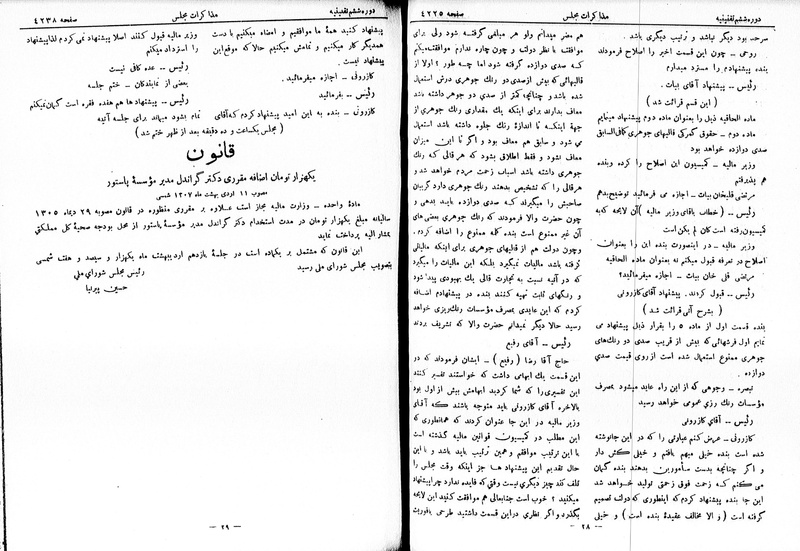 دوره ششم تقنینیه
مذاکرات مجلس
صفحه ٤٢٢٥
سرحد بود دیگر نباشد و ترتیب دیگری باشد .
روحی – چون این قسمت اخیر را اصلاح فرمودند
بنده پیشنهادم را مسترد میدارم
رئیس – پیشنهاد آقای بیات .
( این قسم قرائت شد )
ماده الحاقیه ذیل را بعنوان ماده دوم پیشنهاد مینمایم
ماده دوم – حقوق گمرکی قالیهای جوهری کمافی‌السابق
صدی دوازده خواهد بود
وزیر مالیه – کمیسیون این اصلاح را کرده وبنده
هم پذیرفتم
مرتضی قلیخان بیات – اجازه می فرمائید توضیح بدهم
رئیس – ( خطاب باقای وزیر مالیه ) آن لایحه که به
کمیسیون رفته است کان لم یکن است
وزیر مالیه – در اینصورت بنده این را بعنوان
اصلاح در تعرفه قبول میکنم نه بعنوان ماده الحاقیه
مرتضی قلی خان بیات – اجازه میفرمائید؟
رئیس – قبول کردند . پیشنهاد آقای کازرونی
( بشرح آتی قرائت شد )
بنده قسمت اول از ماده ٥ را بقرار ذیل پیشنهاد می
نمایم اول فرشهائی که بیش از قریب صدی دو رنگهای
جوهری ممنوع استعمال شده است از روی قیمت صدی
دوازده .
تبصره – وجوهی که از این راه عاید میشود بمصرف
مؤسسات رنك رزی عمومی خواهد رسید
رئیس – آقای کازرونی
کازرونی – عرض کنم عبارتی را که در این جا نوشته
شده است بنده خیلی مبهم یافتم و خیلی کش دار
و اگر چنانچه بدست مأمورین بدهند بنده گمان
می کنم که زحمت فوق زحمتی تولید خواهد شد
این جا بنده پیشنهاد کردم که اینطوری که دولت تصمیم
گرفته است ( و الا مخالف عقیدهٔ بنده است ) و خیلی
هم مضر میدانم ولو هر مبلغی گرفته شود ولی برای
موافقت با نظر دولت و چون چاره ندارم موافقت میکنم
که صدی دوازده گرفته شود اما چه طور ؟ اولا از
قالیهائی که بیش از صدی دو رنك جوهری درش استعمال
شده باشد و چنانچه کمتر از صدی دو جوهر داشته باشد
معاف بدارند برای اینکه یك مقداری رنك جوهری از
جهة اینکه تا اندازهٔ رنك جلوه داشته باشد استعمال
می شود و سابق هم معاف بود و اگر تا این میزان
معاف نشود و فقط اطلاقی بشود که هر قالی که رنك
جوهری داشته باشد اسباب زحمت مردم خواهد شد و
هر قالی را که تشخیص بدهند رنك جوهری دارد گریبان
صاحبش را میگیرند که صدی دوازده باید بدهی و
چون حضرت والا فرمودند که رنك جوهری بعضی های
آن غیر ممنوع است بنده کلمه ممنوع را اضافه کردم .
وچون دولت هم از قالیهای جوهری برای اینکه مالیاتی
گرفته باشد مالیات نمیگیرد بلکه این مالیات را میگیرد
که در آتیه نسبت به تجارت قالی یك بهبودی پیدا شود
و رنگهای ثابت تهیه کنند بنده در پیشنهادم اضافه
کردم که این عایدی بمصرف مؤسسات رنك‌ریزی خواهد
رسید حالا دیگر نمیدانم حضرت والا که تشریف بردند
رئیس – آقای رفیع
حاج آقا رضا ( رفیع ) – ایشان فرمودند که در
این قسمت یك ابهامی داشت که خواستند تفسیر کنند
این تفسیری را که شما کردید ابهامش بیش از اول بود
بالاخره آقای کازرونی باید متوجه باشند که آقای
وزیر مالیه در این جا عنوان کردند که همانطوری که
این مطلب در کمیسیون قوانین مالیه گذشته است
با این ترتیب موافقم و همین ترتیب باید باشد و با این
حال تقدیم این پیشنهاد ها جز اینکه وقت مجلس را
تلف کند چیز دیگری نیست وقتی که فایده ندارد چرا پیشنهاد
میکنید ؟ خوب است جنابعالی هم موافقت کنید این لایحه
بگذرد و اگر نظری در این قسمت داشتید طرحی یا فوریت
– ٢٨ –
دوره ششم تقنینیه
مذاکرات مجلس
صفحه ٤٢٣٨
پیشنهاد کنید همهٔ ما موافقیم و امضاء میکنیم با دست
همدیگر کار میکنیم و تمامش میکنیم حالا که موقع این
پیشنهاد نیست .
کازرونی – اجازه میفرمائید .
رئیس – بفرمائید
کازرونی – بنده به این امید پیشنهاد کردم که آقای
وزیر مالیه قبول کنند اصلا پیشنهاد نمی کردم لذا پیشنهاد
را استرداد میکنم
رئیس – عده کافی نیست
بعضی از نمایندگان – ختم جلسه
رئیس – پیشنهاد ها هم هفده فقره است گمان نمیکنم
تمام بشود میماند برای جلسه آتیه
( مجلس یکساعت و ده دقیقه بعد از ظهر ختم شد )
قانون
یکهزار تومان اضافه مقرری دکتر گراندل مدیر مؤسسهٔ پاستور
مصوب ١١ اردی بهشت ماه ١٣٠٧ شمسی
مادهٔ واحده – وزارت مالیه مجاز است علاوه بر مقرری منظوره در قانون مصوبه ٢٩ دیماه ١٣٠٥
سالیانه مبلغ یکهزار تومان در مدت استخدام دکتر گراندل مدیر مؤسسهٔ پاستور از محل بودجه صحیهٔ کل مملکتی
بمشارالیه پرداخت نماید
این قانون که مشتمل بر یکماده است در جلسهٔ یازدهم اردیبهشت ماه یکهزار و سیصد و هفت شمسی
بتصویب مجلس شورای ملی رسید
رئیس مجلس شورای ملی
حسین پیرنیا
– ٢٩ –